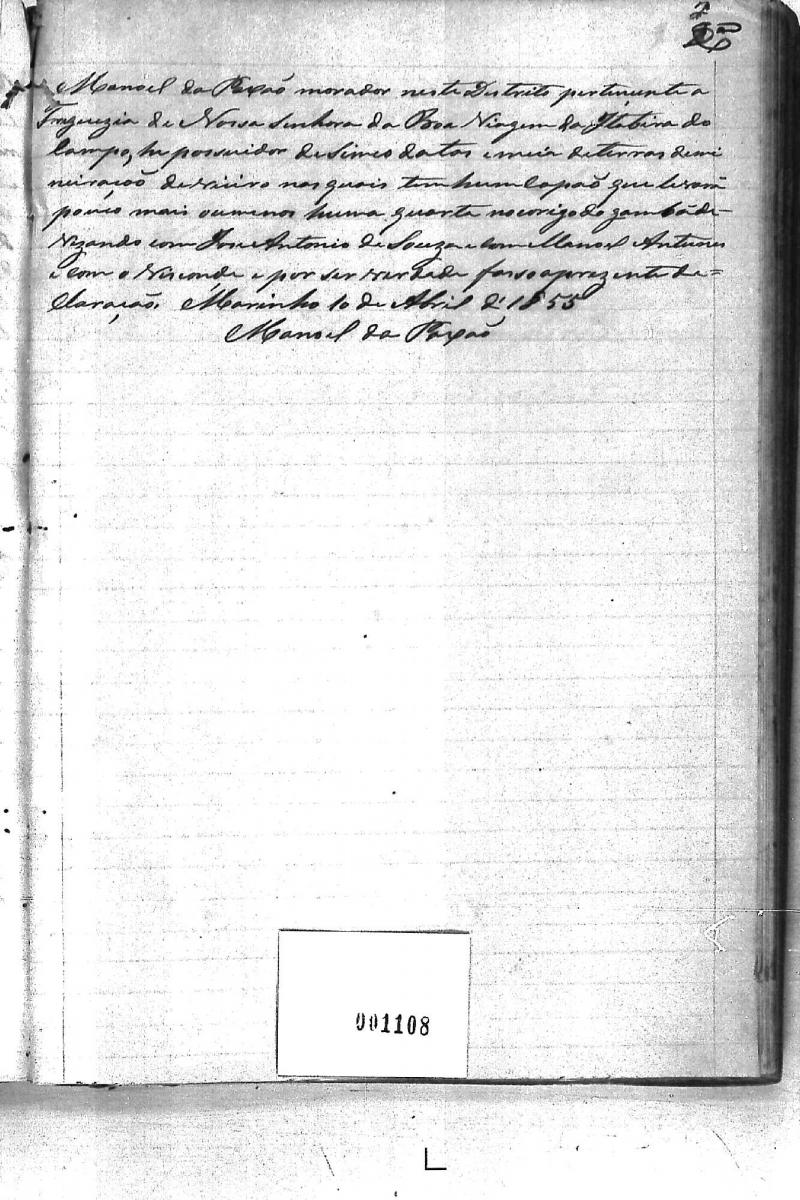 Manoel da Paxaõ morador neste Destrito pertencente a
Freguezia de Nossa Senhora da Boa Viagem da Itabira do
Campo, he possuidor de Sinco datas e meia de terras de mi
neiraçaõ de viiiro nas quais tem hum Capaõ que levará
pouco mais ou menos huma quarta no corigo do gambá de-
vizando com Jose Antonio de Souza e com Manoel Antunes
e com o Visconde e por ser verdade fasso aprezente de=
Claraçaõ. Marinho 10 de Abril de 1855
Manoel da Paxaõ
001108